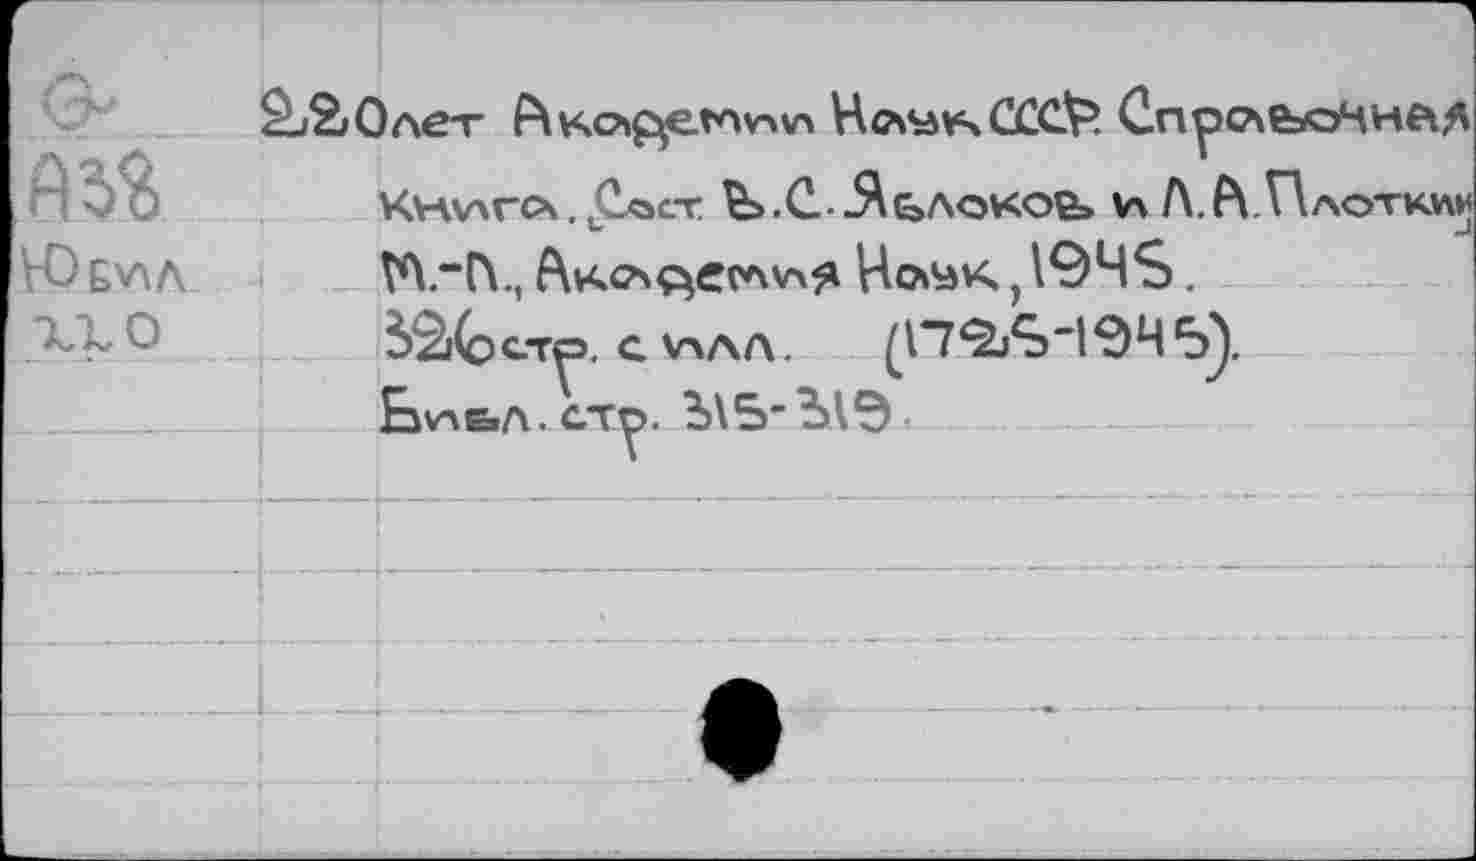 G
АЗ8
Юбил
220
220 лет Академии Наук СССР. Справочная
книга. Сост. В.С. Яблоков и Л.А. Плоткин
М.-Л., Академия Наук, 1945.
326 стр. с илл. (1725-1945).
Библ. стр. 315-319.